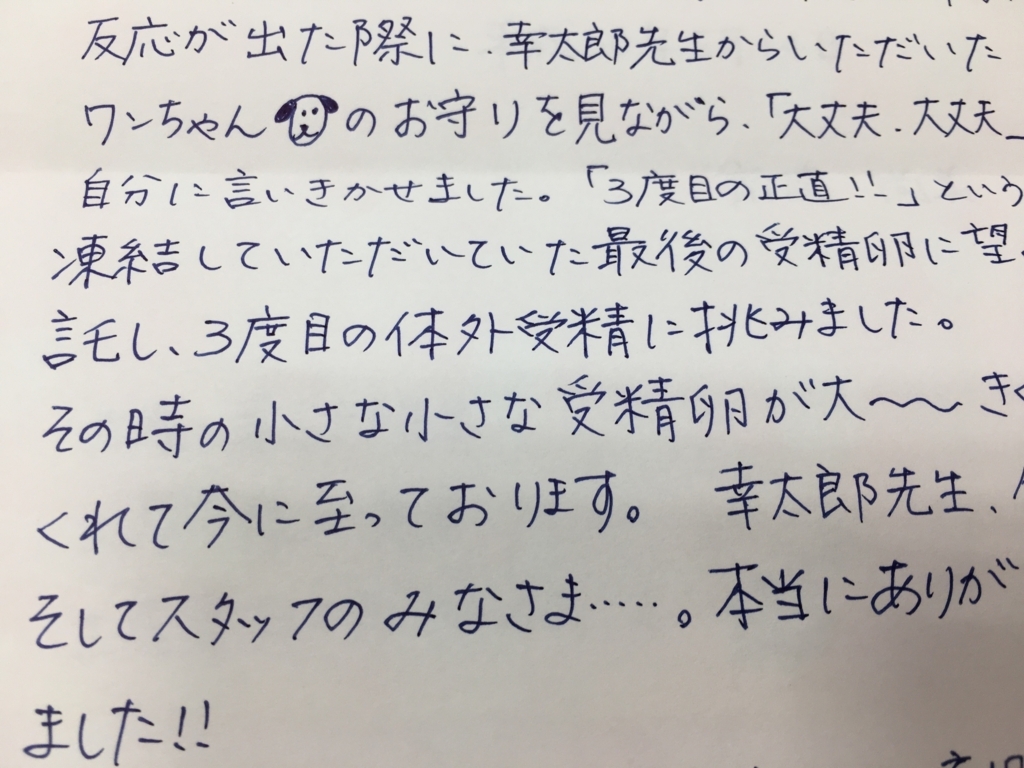 反応が出た際に、幸太郎先生からいただいた
ワンちゃんのお守りを見ながら、「大丈夫、大丈夫
自分に言いきかせました。「3度目の正直!!」という
凍結していただいていた最後の受精卵に望
託し、3度目の体外受精に挑みました。
その時の小さな小さな受精卵が大〜〜きく
くれて今に至っております。 幸太郎先生、
そしてスタッフのみなさま……。本当にありが
ました!!